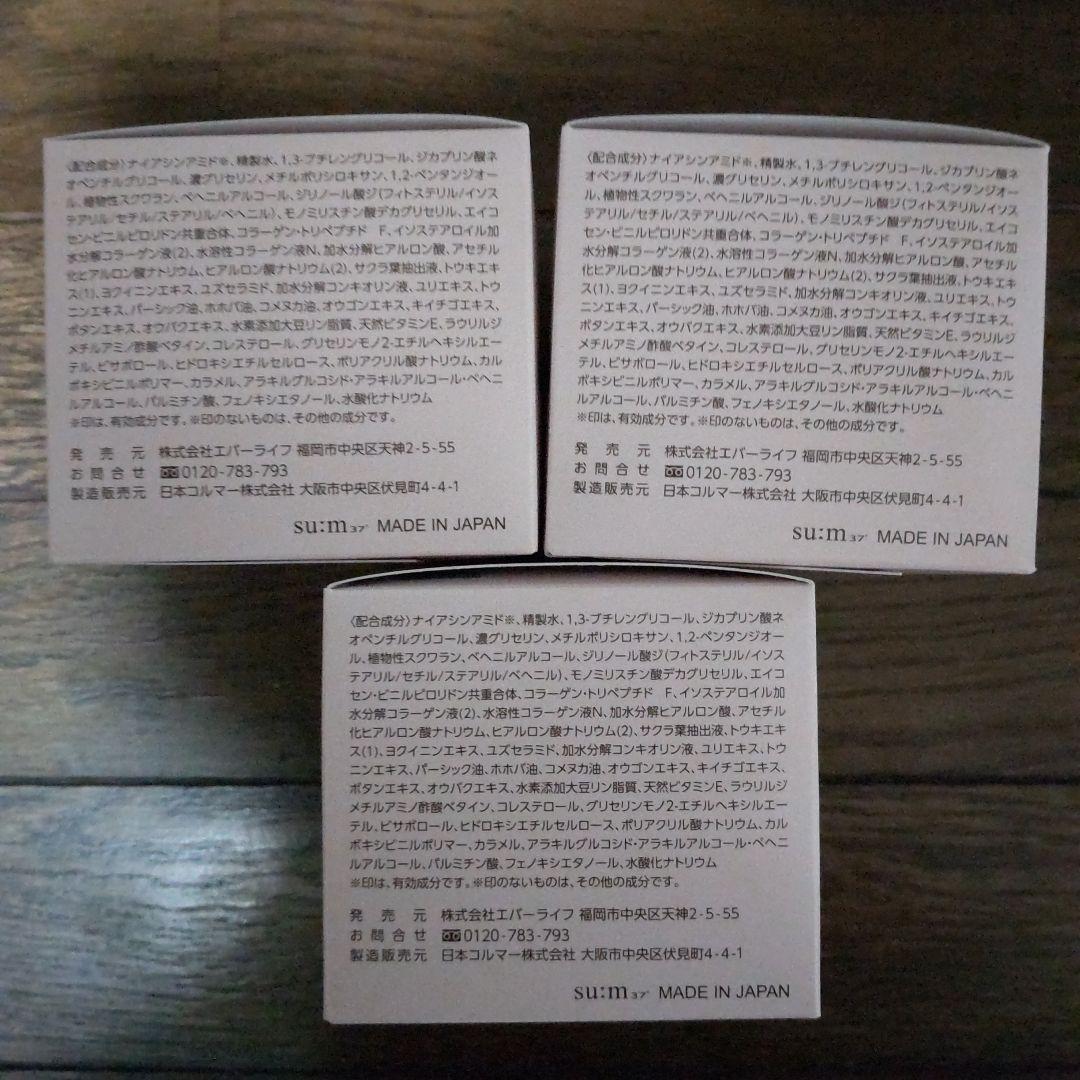 〈配合成分〉ナイアシンアミド※、精製水、1,3-ブチレングリコール、ジカプリン酸ネ
オペンチルグリコール、濃グリセリン、メチルポリシロキサン、1,2-ペンタンジオー
ル、植物性スクワラン、ベヘニルアルコール、ジリノール酸ジ(フィトステリル/イソス
テアリル/セチル/ステアリル/ベヘニル)、モノミリスチン酸デカグリセリル、エイコ
セン・ビニルピロリドン共重合体、コラーゲン・トリペプチド F、イソステアロイル加
水分解コラーゲン液(2)、水溶性コラーゲン液N、加水分解ヒアルロン酸、アセチル
化ヒアルロン酸ナトリウム、ヒアルロン酸ナトリウム(2)、サクラ葉抽出液、トウキエキ
ス(1)、ヨクイニンエキス、ユズセラミド、加水分解コンキオリン液、ユリエキス、トウ
ニンエキス、パーシック油、ホホバ油、コメヌカ油、オウゴンエキス、キイチゴエキス、
ボタンエキス、オウバクエキス、水素添加大豆リン脂質、天然ビタミンE、ラウリルジ
メチルアミノ酢酸ベタイン、コレステロール、グリセリンモノ2-エチルヘキシルエー
テル、ビサボロール、ヒドロキシエチルセルロース、ポリアクリル酸ナトリウム、カル
ボキシビニルポリマー、カラメル、アラキルグルコシド・アラキルアルコール・ベヘニ
ルアルコール、パルミチン酸、フェノキシエタノール、水酸化ナトリウム
※印は、有効成分です。※印のないものは、その他の成分です。
発売元 株式会社エバーライフ 福岡市中央区天神2-5-55
お問合せ 0120-783-793
製造販売元 日本コルマー株式会社 大阪市中央区伏見町4-4-1
su:m37° MADE IN JAPAN
〈配合成分〉ナイアシンアミド※、精製水、1,3-ブチレングリコール、ジカプリン酸ネ
オペンチルグリコール、濃グリセリン、メチルポリシロキサン、1,2-ペンタンジオー
ル、植物性スクワラン、ベヘニルアルコール、ジリノール酸ジ(フィトステリル/イソス
テアリル/セチル/ステアリル/ベヘニル)、モノミリスチン酸デカグリセリル、エイコ
セン・ビニルピロリドン共重合体、コラーゲン・トリペプチド F、イソステアロイル加
水分解コラーゲン液(2)、水溶性コラーゲン液N、加水分解ヒアルロン酸、アセチル
化ヒアルロン酸ナトリウム、ヒアルロン酸ナトリウム(2)、サクラ葉抽出液、トウキエキ
ス(1)、ヨクイニンエキス、ユズセラミド、加水分解コンキオリン液、ユリエキス、トウ
ニンエキス、パーシック油、ホホバ油、コメヌカ油、オウゴンエキス、キイチゴエキス、
ボタンエキス、オウバクエキス、水素添加大豆リン脂質、天然ビタミンE、ラウリルジ
メチルアミノ酢酸ベタイン、コレステロール、グリセリンモノ2-エチルヘキシルエー
テル、ビサボロール、ヒドロキシエチルセルロース、ポリアクリル酸ナトリウム、カル
ボキシビニルポリマー、カラメル、アラキルグルコシド・アラキルアルコール・ベヘニ
ルアルコール、パルミチン酸、フェノキシエタノール、水酸化ナトリウム
※印は、有効成分です。※印のないものは、その他の成分です。
発売元 株式会社エバーライフ 福岡市中央区天神2-5-55
お問合せ 0120-783-793
製造販売元 日本コルマー株式会社 大阪市中央区伏見町4-4-1
su:m37° MADE IN JAPAN
〈配合成分〉ナイアシンアミド※、精製水、1,3-ブチレングリコール、ジカプリン酸ネ
オペンチルグリコール、濃グリセリン、メチルポリシロキサン、1,2-ペンタンジオー
ル、植物性スクワラン、ベヘニルアルコール、ジリノール酸ジ(フィトステリル/イソス
テアリル/セチル/ステアリル/ベヘニル)、モノミリスチン酸デカグリセリル、エイコ
セン・ビニルピロリドン共重合体、コラーゲン・トリペプチド F、イソステアロイル加
水分解コラーゲン液(2)、水溶性コラーゲン液N、加水分解ヒアルロン酸、アセチル
化ヒアルロン酸ナトリウム、ヒアルロン酸ナトリウム(2)、サクラ葉抽出液、トウキエキ
ス(1)、ヨクイニンエキス、ユズセラミド、加水分解コンキオリン液、ユリエキス、トウ
ニンエキス、パーシック油、ホホバ油、コメヌカ油、オウゴンエキス、キイチゴエキス、
ボタンエキス、オウバクエキス、水素添加大豆リン脂質、天然ビタミンE、ラウリルジ
メチルアミノ酢酸ベタイン、コレステロール、グリセリンモノ2-エチルヘキシルエー
テル、ビサボロール、ヒドロキシエチルセルロース、ポリアクリル酸ナトリウム、カル
ボキシビニルポリマー、カラメル、アラキルグルコシド・アラキルアルコール・ベヘニ
ルアルコール、パルミチン酸、フェノキシエタノール、水酸化ナトリウム
※印は、有効成分です。※印のないものは、その他の成分です。
発売元 株式会社エバーライフ 福岡市中央区天神2-5-55
お問合せ 0120-783-793
製造販売元 日本コルマー株式会社 大阪市中央区伏見町4-4-1
su:m37° MADE IN JAPAN